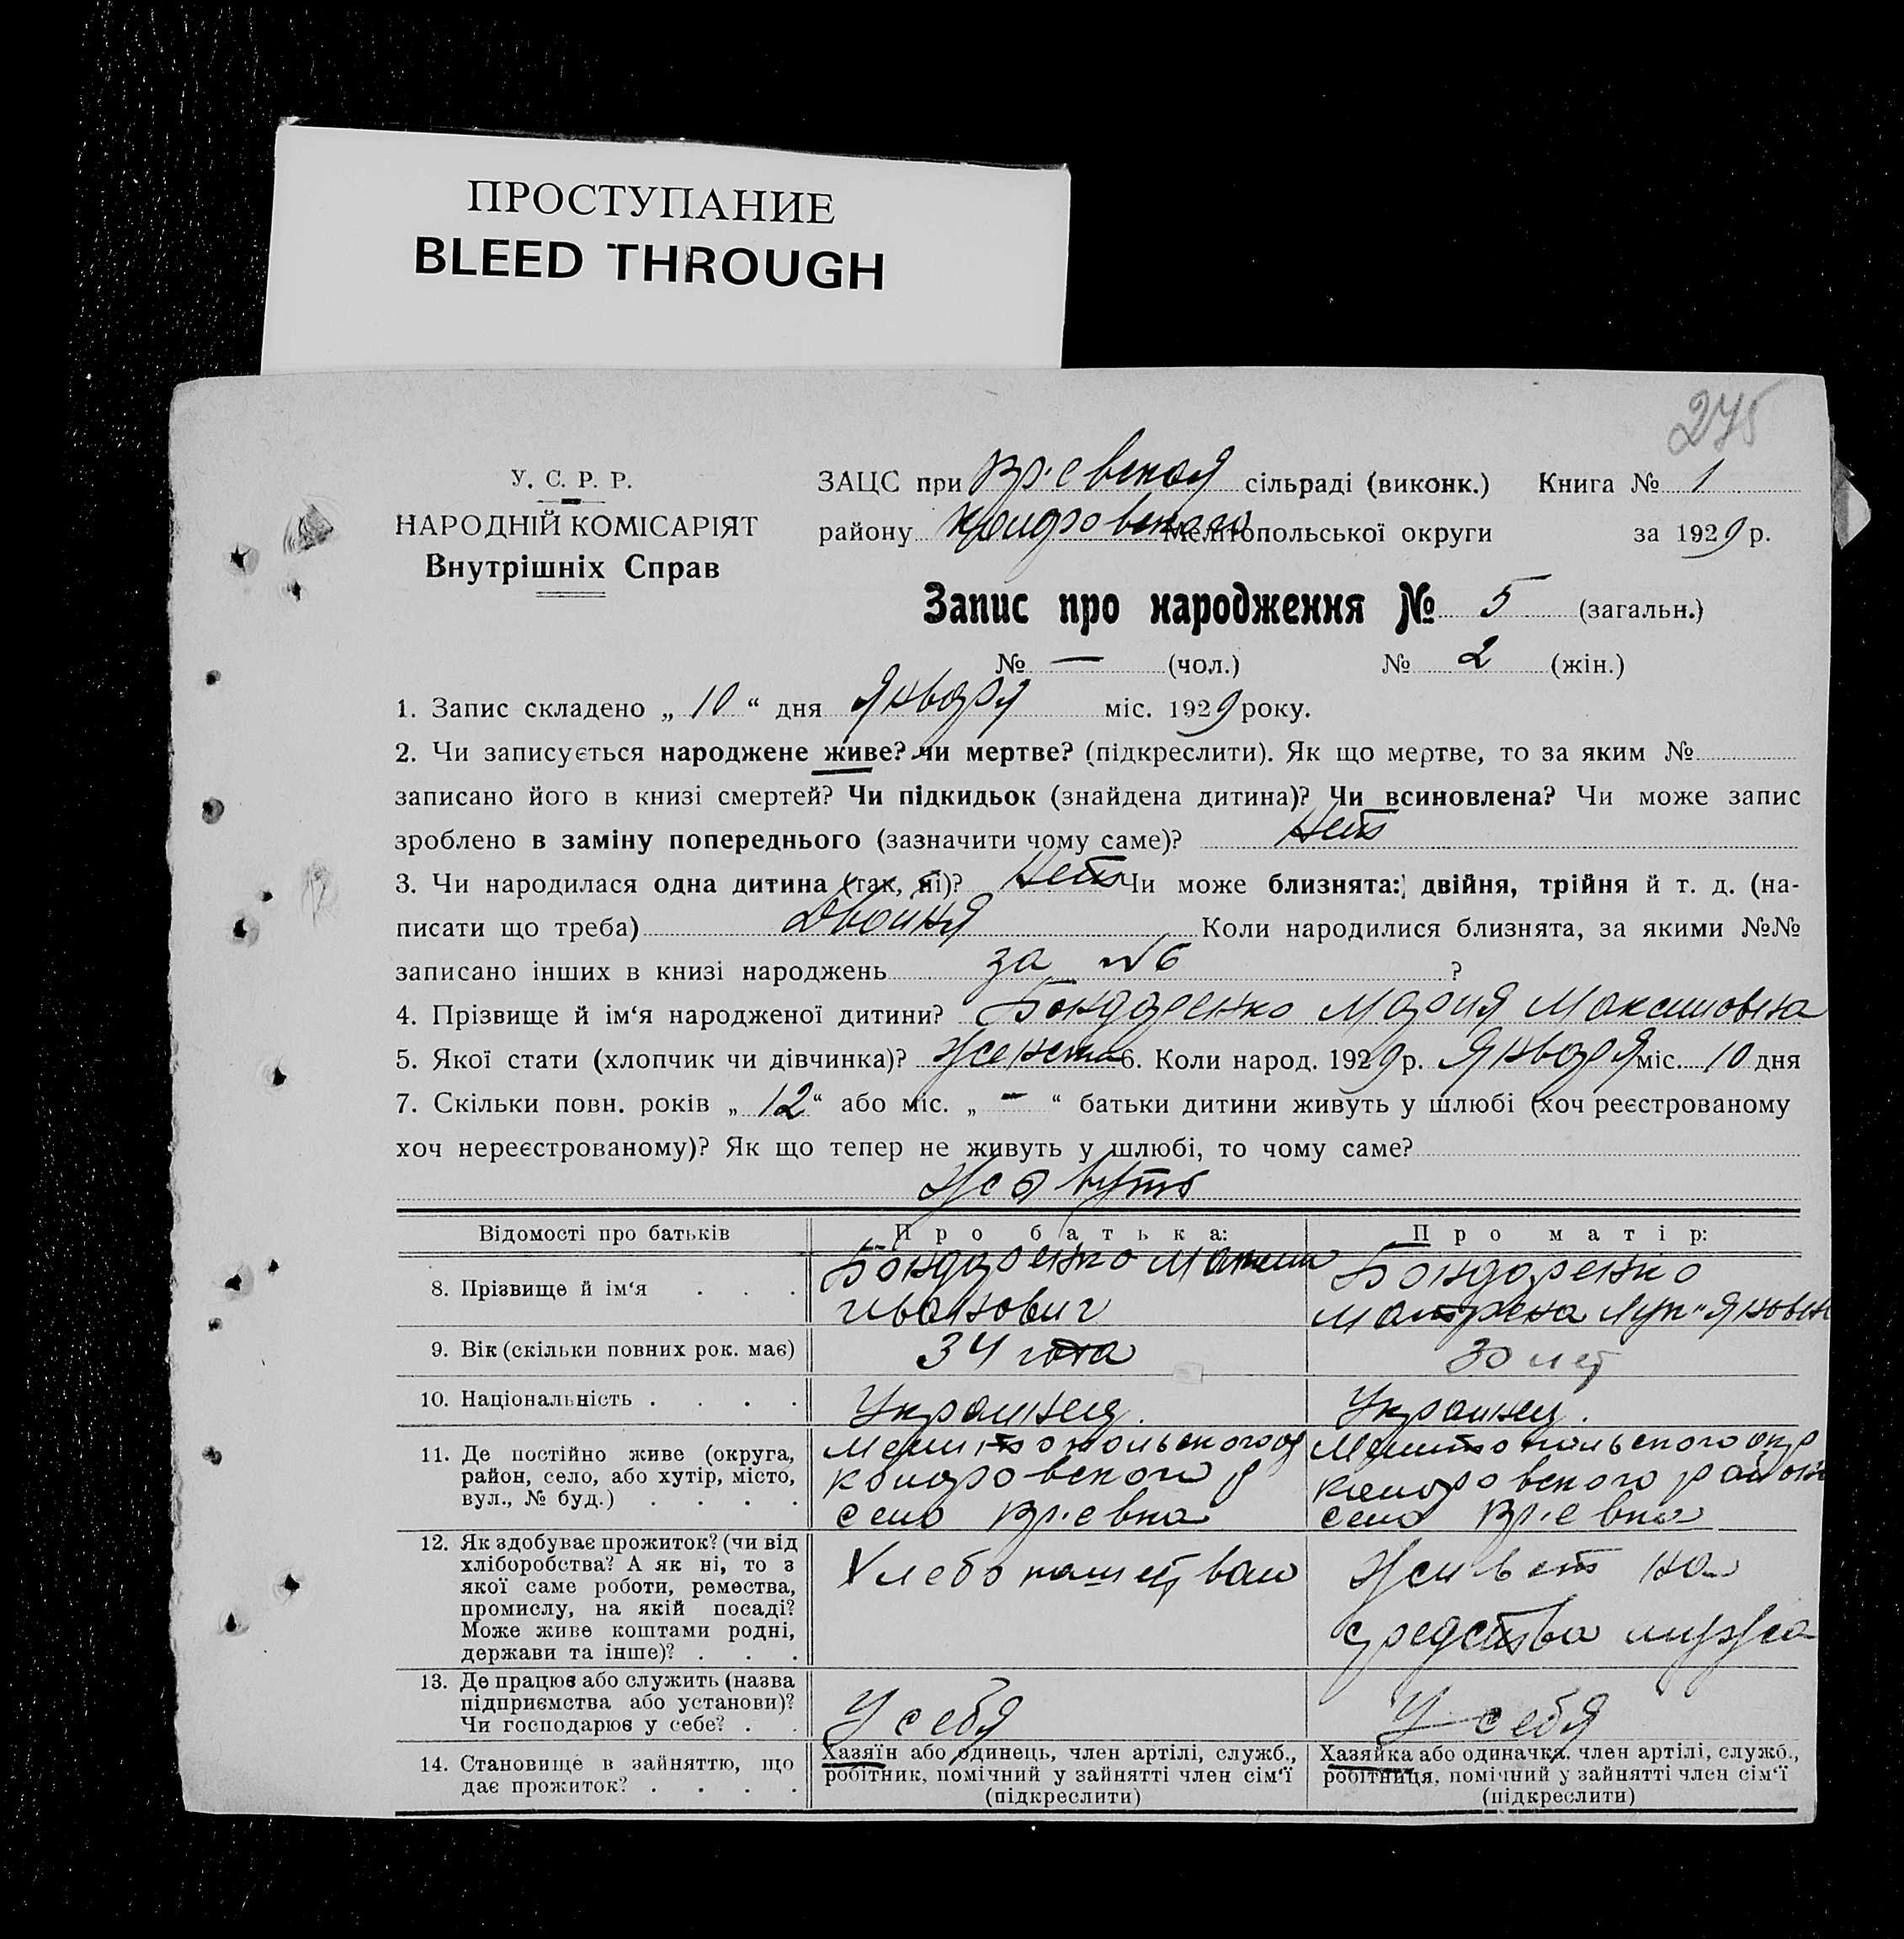 ПРОСТУПАНИЕ
BLEED THROUGH
275
У. С. Р. Р.
НАРОДНІЙ КОМІСАРІЯТ
Внутрішніх Справ
ЗАЦС при сільраді (виконк.) Книга № 1
району Мелітопольської округи за 1929 р.
Запис про народження № 5 (загальн.)
№ — (чол.) № 2 (жін.)
1. Запис складено „ 10 “ дня Января міс. 1929 року.
2. Чи записується народжене живе? чи мертве? (підкреслити). Як що мертве, то за яким №
записано його в книзі смертей? Чи підкидьок (знайдена дитина)? Чи всиновлена? Чи може запис
зроблено в заміну попереднього (зазначити чому саме)? Нет
3. Чи народилася одна дитина (так, ні)? Нет Чи може близнята: двійня, трійня й т. д. (на-
писати що треба) Двойня Коли народилися близнята, за якими №№
записано інших в книзі народжень за № 6 ?
4. Прізвище й ім‘я народженої дитини? Бондаренко Мария Максимовна
5. Якої стати (хлопчик чи дівчинка)? 6. Коли народ. 1929 р. Января міс. 10 дня
7. Скільки повн. років „ 12 “ або міс. „ — “ батьки дитини живуть у шлюбі (хоч реєстрованому
хоч нереєстрованому)? Як що тепер не живуть у шлюбі, то чому саме?
Живуть
Відомості про батьків Про батька: Про матір:
8. Прізвище й ім‘я . . . Бондаренко Максим Бондаренко
Иванович Матрена
9. Вік (скільки повних рок. має) 34 года 30 лет
10. Національність . . . . Украинец. Украинец.
11. Де постійно живе (округа, Мелитопольского Мелитопольского окр
район, село, або хутір, місто, района
вул., № буд.) . . . . село село
12. Як здобуває прожиток? (чи від
хліборобства? А як ні, то з Хлебопашеством Живет на
якої саме роботи, ремества,
промислу, на якій посаді? средства мужа
Може живе коштами родні,
держави та інше)? . . .
13. Де працює або служить (назва
підприємства або установи)? У себя У себя
Чи господарює у себе? . .
14. Становище в зайняттю, що Хазяїн або одинець, член артілі, служб., Хазяйка або одиначка, член артілі, служб.,
дає прожиток? . . . . робітник, помічний у зайнятті член сім‘ї робітниця, помічний у зайнятті член сім‘ї
(підкреслити) (підкреслити)